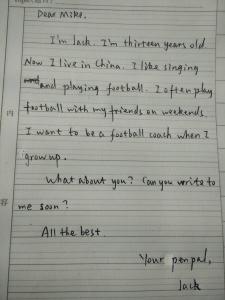 Dear Mike,
I'm Jack. I'm thirteen years old.
Now I live in China. I like singing
and and playing football. I often play
football with my friends on weekends.
I want to be a football coach when I
grow up.
What about you? Can you write to
me soon?
All the best.
Your penpal,
Jack
内
容